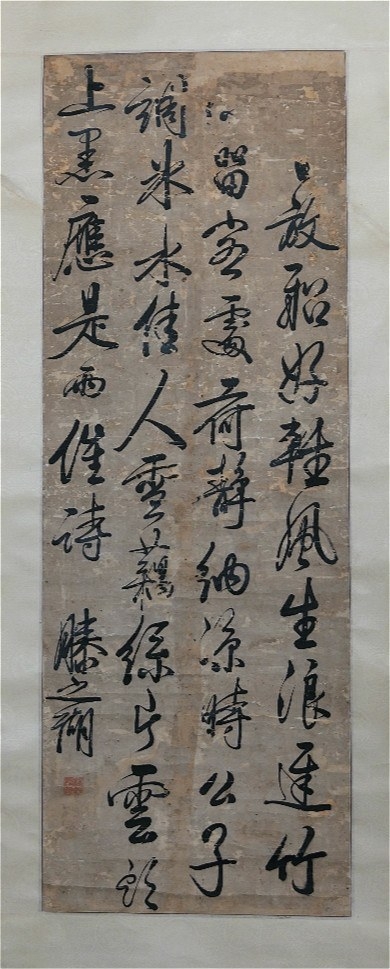 日放船好輕風生浪遲竹
留客處荷靜納涼時公子
調冰水佳人雪藕絲片雲頭
上黑應是雨催詩 滕之瑚